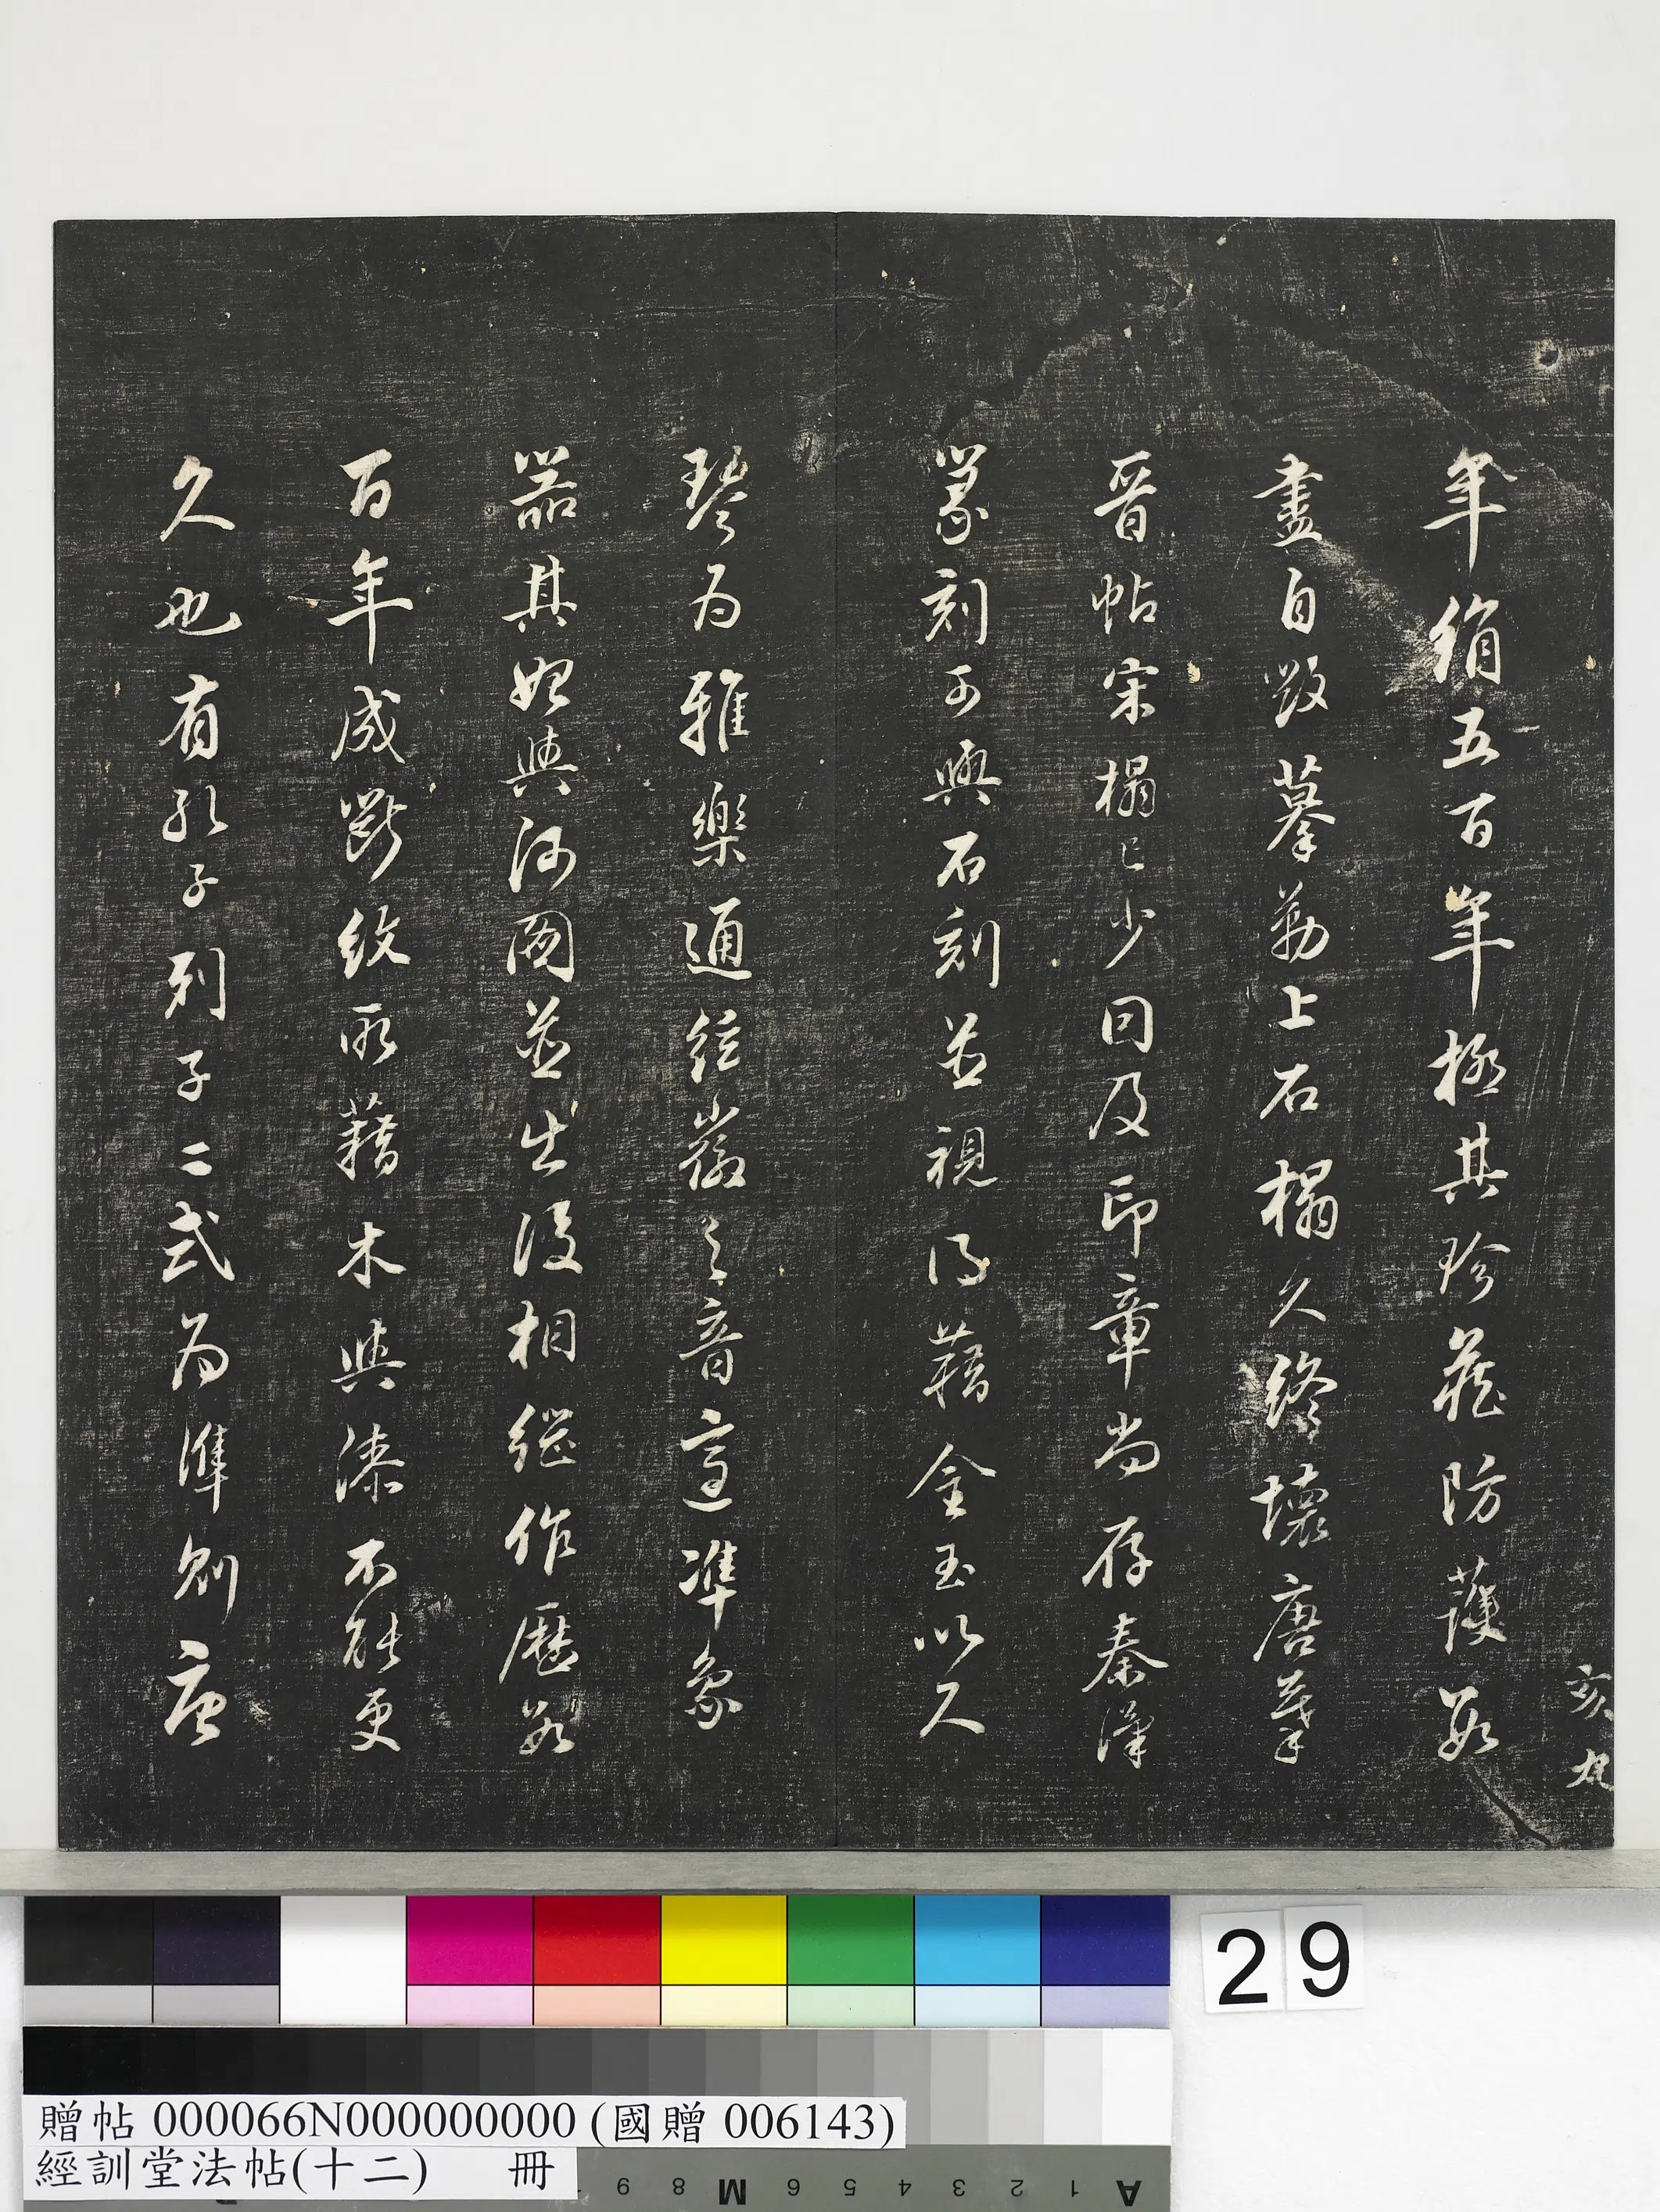 年絹五百年極其珍藏防護数
畫自毀摹勒上石榻久終壞唐摹
晉帖宋榻已少同及印章尚存秦漢
篆刻可與石刻並視得藉金玉以久
琴為雅樂通絃徽之音定準象
器其始與河圖並出後相繼作歷数
百年成斷紋所藉木與漆不能更
久也有孔子列子二式為準則唐
亥九
29
贈帖 000066N000000000 (國贈 006143)
經訓堂法帖(十二) 冊
9 8 M 6 5 4 3 2 1 A